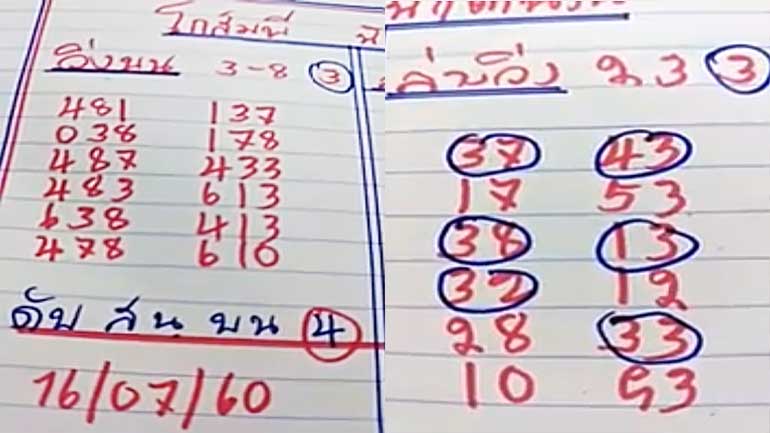 โกสัมพี
วิ่งบน 3-8 3
481 137
038 178
487 433
483 613
638 413
478 610
ดับ สน บน 4
16/07/60
ล่างวิ่ง 2 3 3
37 43
17 53
38 13
32 12
28 33
10 93